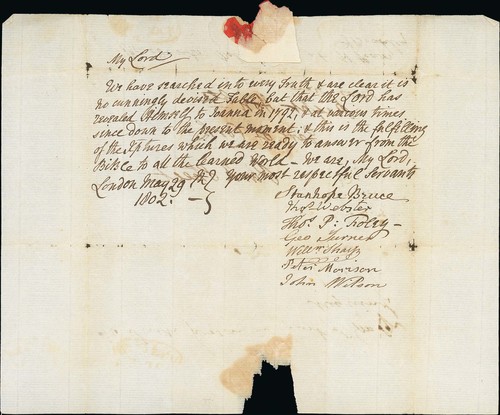 My Lord
We have searched into every Truth & are clear it is
no cunningly devised Fable, but that the Lord has
revealed Himself to Joanna in 1792, & at various times
since down to the present moment; & this is the fulfilling
of the which we are ready to answer from the
Bible to all the learned World — We are, My Lord,
London May 29th } Your most respectful Servants
1802. — }
Stanhope Bruce
Thos Webster
Thos. P: Foley —
Geo Turner
Willm Sharp
Peter Morrison
John Wilson